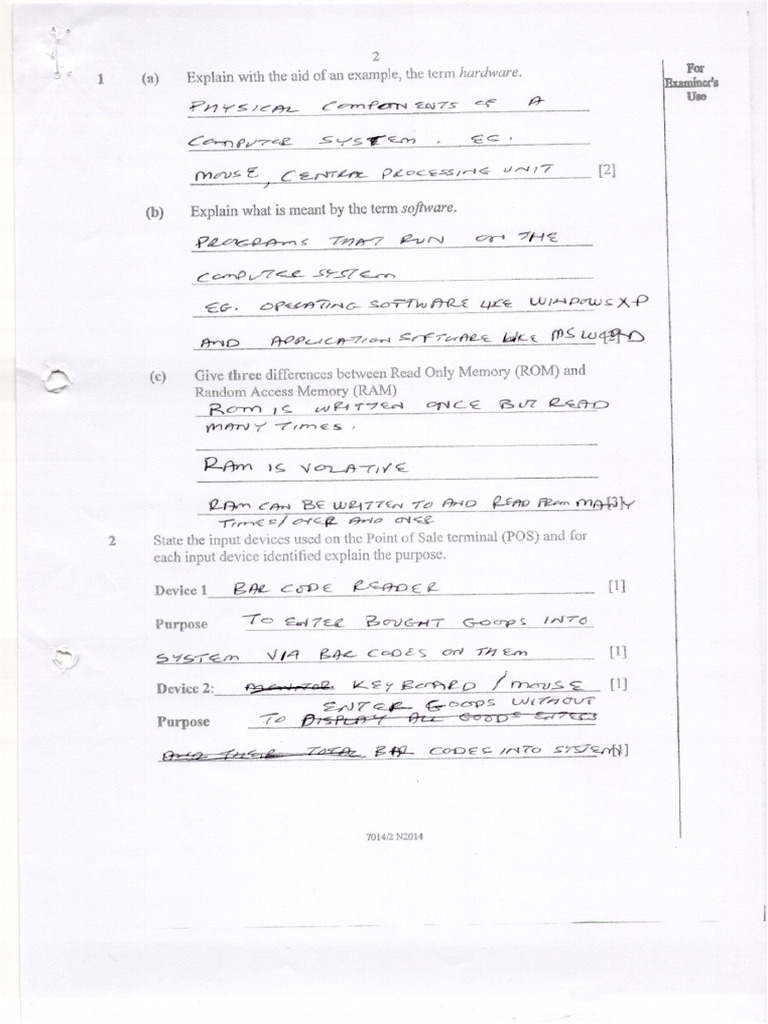 2
For
Examiner's
Use
1 (a) Explain with the aid of an example, the term hardware.
PHYSICAL COMPONENTS OF A
COMPUTER SYSTEM. EG.
MOUSE, CENTRAL PROCESSING UNIT [2]
(b) Explain what is meant by the term software.
PROGRAMS THAT RUN ON THE
COMPUTER SYSTEM
EG. OPERATING SOFTWARE LIKE WINDOWS XP
AND APPLICATION SOFTWARE LIKE MS WORD
(c) Give three differences between Read Only Memory (ROM) and
Random Access Memory (RAM)
ROM IS WRITTEN ONCE BUT READ
MANY TIMES.
RAM IS VOLATIVE
RAM CAN BE WRITTEN TO AND READ FROM MANY [3]
TIMES/OVER AND OVER
2 State the input devices used on the Point of Sale terminal (POS) and for
each input device identified explain the purpose.
Device 1 BAR CODE READER [1]
Purpose TO ENTER BOUGHT GOODS INTO
SYSTEM VIA BAR CODES ON THEM [1]
Device 2: MONITOR KEYBOARD / MOUSE [1]
ENTER GOODS WITHOUT
Purpose TO DISPLAY ALL GOODS ENTERED
AND THEIR TOTAL BAR CODES INTO SYSTEM [1]
7014/2 N2014